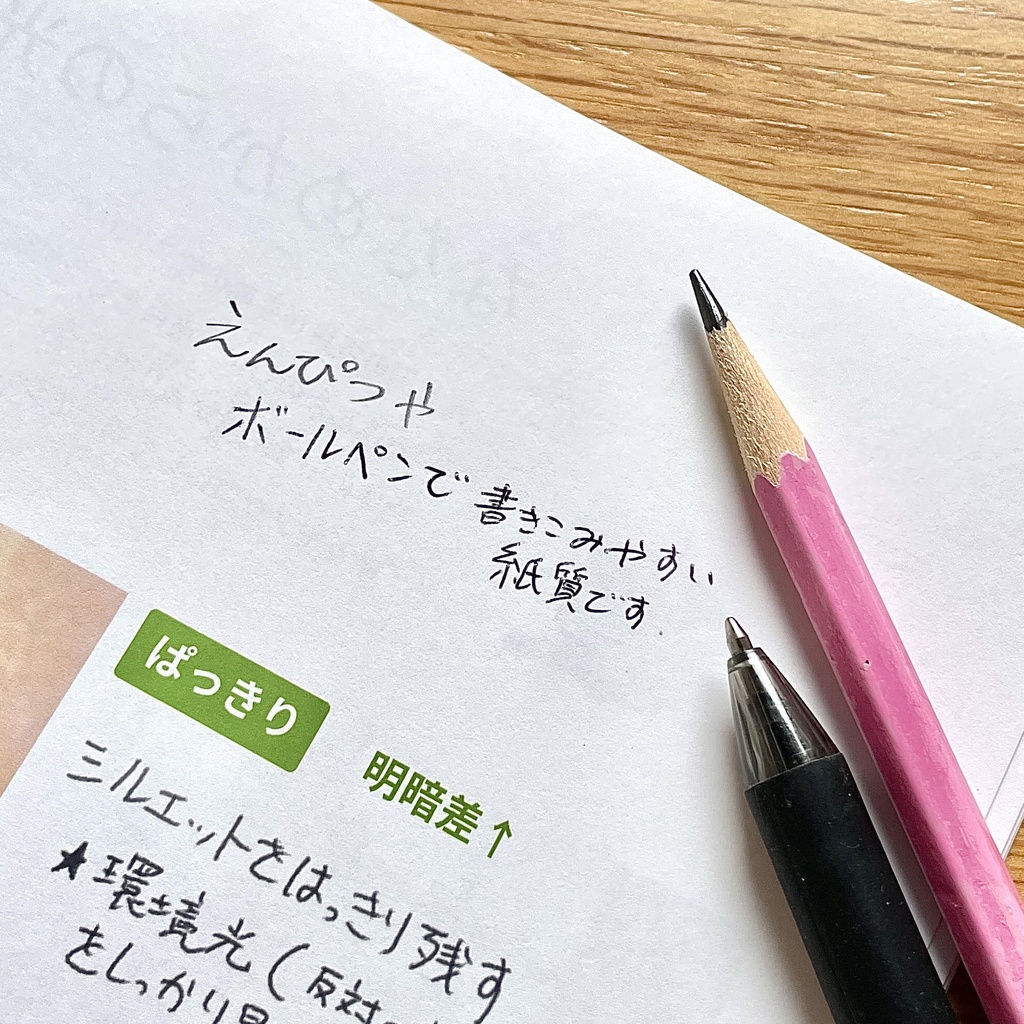 えんぴつや
ボールペンで書きこみやすい
紙質です.
ぱっきり
明暗差↑
シルエットをはっきり残す
★環境光(反対
をしっかり